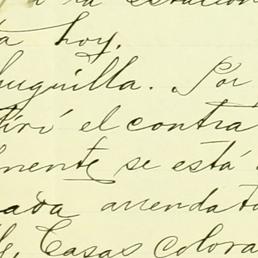 la estacion
ta hoy.
huquilla. Por
tiri el contra
mente se está
nada arrendata
Casas colora